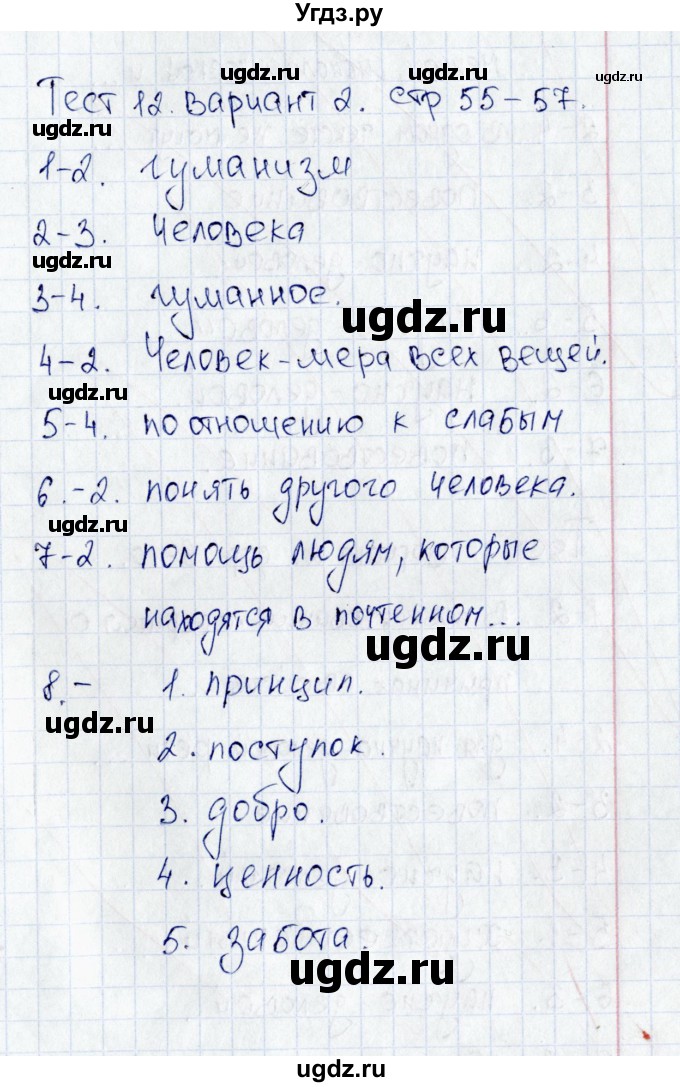 Угдз.ру
Тест 12. Вариант 2. стр 55-57.
1-2. гуманизм
2-3. Человека
3-4. гуманное.
4-2. Человек-мера всех вещей.
5-4. по отношению к слабым
6.-2. понять другого человека.
7-2. помощь людям, которые
находятся в почтенном...
8.- 1. принцип.
2. поступок.
3. добро.
4. ценность.
5. забота.
ugdz.ru
ugdz.ru
ugdz.ru
ugdz.ru
ugdz.ru
ugdz.ru
ugdz.ru
ugdz.ru
ugdz.ru
ugdz.ru
ugdz.ru
ugdz.ru